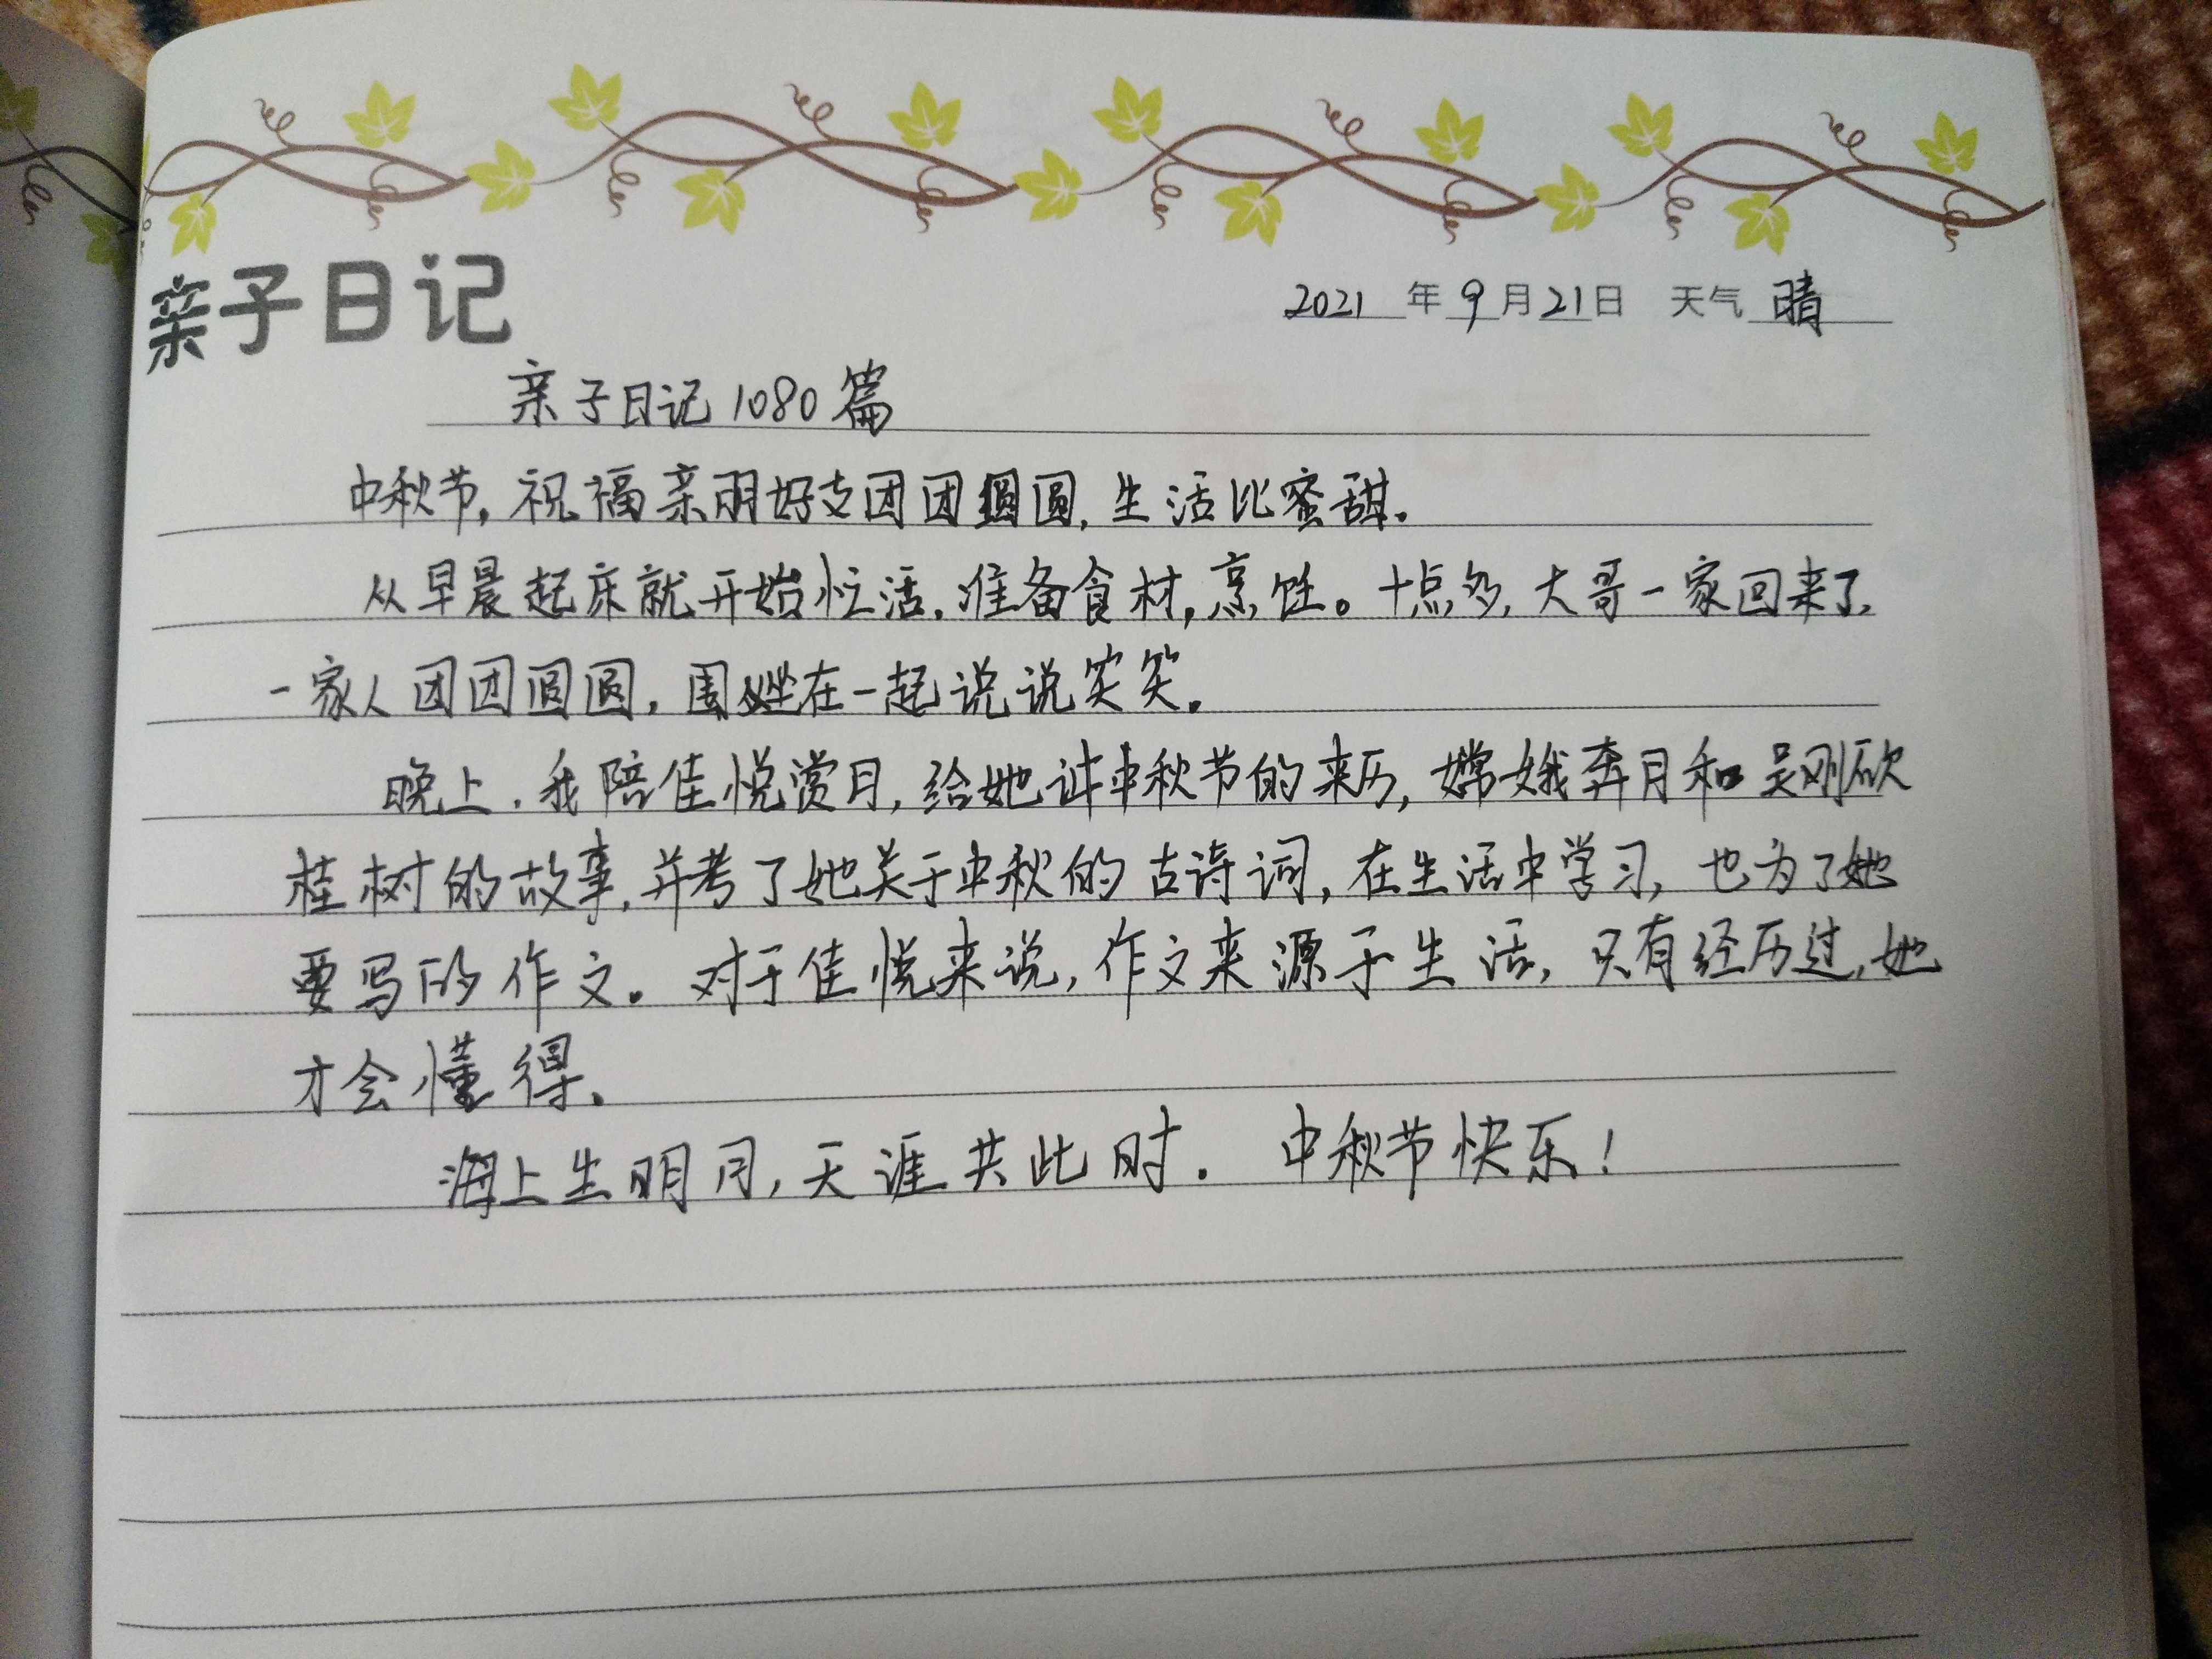 亲子日记
2021年9月21日 天气 晴
亲子日记1080篇
中秋节,祝福亲朋好友团团圆圆,生活比蜜甜。
从早晨起床就开始忙活,准备食材,烹饪。十点多,大哥一家回来了,
一家人团团圆圆,围坐在一起说说笑笑。
晚上,我陪佳悦赏月,给她讲中秋节的来历,嫦娥奔月和吴刚砍
桂树的故事,并考了她关于中秋的古诗词,在生活中学习,也为了她
要写的作文。对于佳悦来说,作文来源于生活,只有经历过,她
才会懂得。
海上生明月,天涯共此时。中秋节快乐!